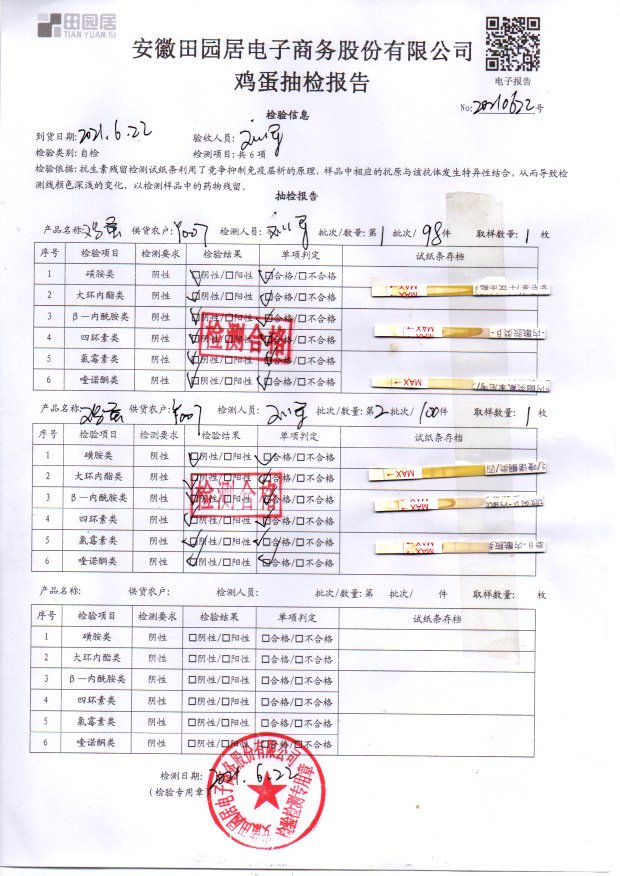 田园居
TIAN YUAN JU
安徽田园居电子商务股份有限公司
鸡蛋抽检报告
电子报告
No:20210622号
检验信息
到货日期:2021.6.22 验收人员:
检验类别:自检 检测项目:共6项
检验依据:抗生素残留检测试纸条利用了竞争抑制免疫层析的原理,样品中相应的抗原与该抗体发生特异性结合,从而导致检
测线颜色深浅的变化,以检测样品中的药物残留。
抽检报告
产品名称:鸡蛋 供货农户:Y007 检测人员: 批次/数量:第1批次/98件 取样数量:1枚
序号 检验项目 检测要求 检验结果 单项判定 试纸条存档
1 磺胺类 阴性 ☑阴性/□阳性 ☑合格/□不合格
2 大环内酯类 阴性 ☑阴性/□阳性 ☑合格/□不合格
3 β一内酰胺类 阴性 ☑阴性/□阳性 ☑合格/□不合格
4 四环素类 阴性 ☑阴性/□阳性 ☑合格/□不合格
5 氯霉素类 阴性 ☑阴性/□阳性 ☑合格/□不合格
6 喹诺酮类 阴性 ☑阴性/□阳性 ☑合格/□不合格
检测合格
MAX→
MAX→
MAX→
产品名称:鸡蛋 供货农户:Y007 检测人员: 批次/数量:第2批次/100件 取样数量:1枚
序号 检验项目 检测要求 检验结果 单项判定 试纸条存档
1 磺胺类 阴性 ☑阴性/□阳性 ☑合格/□不合格
2 大环内酯类 阴性 ☑阴性/□阳性 ☑合格/□不合格
3 β一内酰胺类 阴性 ☑阴性/□阳性 ☑合格/□不合格
4 四环素类 阴性 ☑阴性/□阳性 ☑合格/□不合格
5 氯霉素类 阴性 ☑阴性/□阳性 ☑合格/□不合格
6 喹诺酮类 阴性 ☑阴性/□阳性 ☑合格/□不合格
检测合格
MAX→
MAX→
MAX→
产品名称: 供货农户: 检测人员: 批次/数量:第 批次/ 件 取样数量: 枚
序号 检验项目 检测要求 检验结果 单项判定 试纸条存档
1 磺胺类 阴性 □阴性/□阳性 □合格/□不合格
2 大环内酯类 阴性 □阴性/□阳性 □合格/□不合格
3 β一内酰胺类 阴性 □阴性/□阳性 □合格/□不合格
4 四环素类 阴性 □阴性/□阳性 □合格/□不合格
5 氯霉素类 阴性 □阴性/□阳性 □合格/□不合格
6 喹诺酮类 阴性 □阴性/□阳性 □合格/□不合格
检测日期:2021.6.22
(检验专用章)
安徽田园居电子商务股份有限公司
检验检测专用章